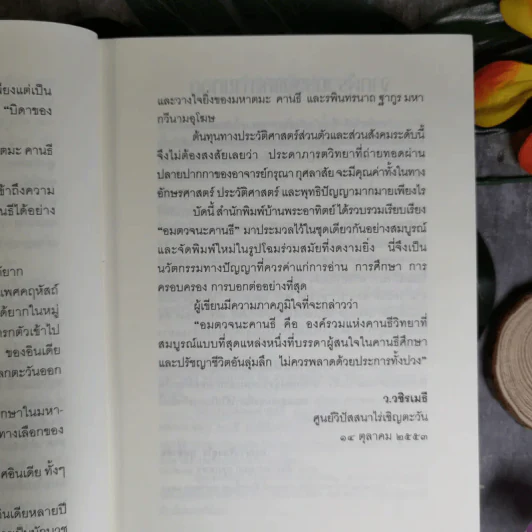 ยงแต่เป็น
"บิดาของ
ตมะ คานธี
ข้าถึงความ
นธีได้อย่าง
ด้ยาก
เพศคฤหัสถ์
ด้ยากในหมู่
รกตัวเข้าไป
ของอินเดีย
ลกตะวันออก
กษาในมหา-
ทางเลือกของ
ศอินเดีย ทั้งๆ
อินเดียหลายปี
และวางใจยิ่งของมหาตมะ คานธี และรพินทรนาถ ฐากูร มหา
กวีนามอุโฆษ
ต้นทุนทางประวัติศาสตร์ส่วนตัวและส่วนสังคมระดับนี้
จึงไม่ต้องสงสัยเลยว่า ประดาภารตวิทยาที่ถ่ายทอดผ่าน
ปลายปากกาของอาจารย์กรุณา กุศลาสัย จะมีคุณค่าทั้งในทาง
อักษรศาสตร์ ประวัติศาสตร์ และพุทธิปัญญามากมายเพียงไร
บัดนี้ สำนักพิมพ์บ้านพระอาทิตย์ ได้รวบรวมเรียบเรียง
"อมตวจนะคานธี" มาประมวลไว้ในชุดเดียวกันอย่างสมบูรณ์
และจัดพิมพ์ใหม่ในรูปโฉมร่วมสมัยที่งดงามยิ่ง นี่จึงเป็น
นวัตกรรมทางปัญญาที่ควรค่าแก่การอ่าน การศึกษา การ
ครอบครอง การบอกต่ออย่างที่สุด
ผู้เขียนมีความภาคภูมิใจที่จะกล่าวว่า
"อมตวจนะคานธี คือ องค์รวมแห่งคานธีวิทยาที่
สมบูรณ์แบบที่สุดแหล่งหนึ่งที่บรรดาผู้สนใจในคานธีศึกษา
และปรัชญาชีวิตอันลุ่มลึก ไม่ควรพลาดด้วยประการทั้งปวง"
ว.วชิรเมธี
ศูนย์วิปัสสนาไร่เชิญตะวัน
๑๔ ตุลาคม ๒๕๕๓